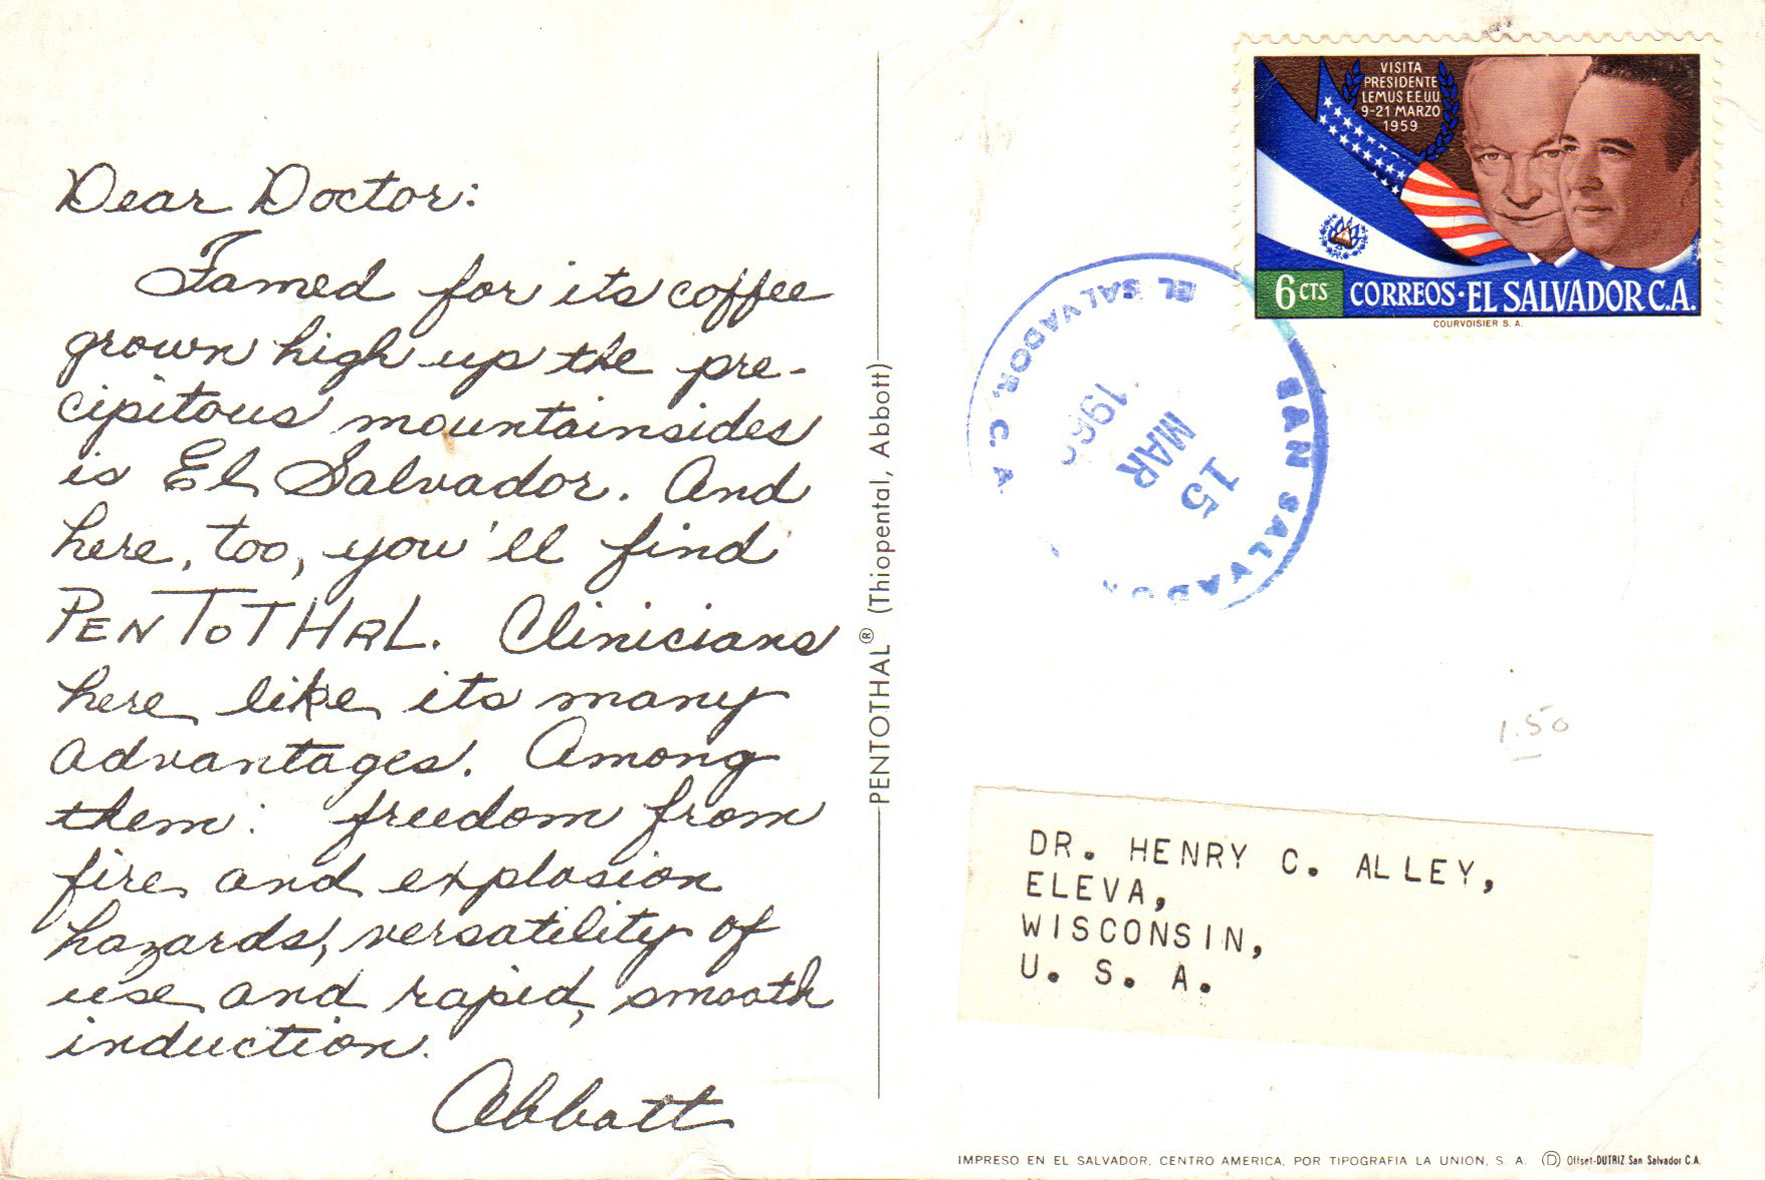 Dear Doctor:
Famed for its coffee
grown high up the pre-
cipitous mountainsides
is El Salvador. And
here, too, you'll find
PENTOTHAL. Clinicians
here like its many
advantages. Among
them: freedom from
fire and explosion
hazards, versatility of
use and rapid, smooth
induction.
Abbott
PENTOTHAL® (Thiopental, Abbott)
VISITA
PRESIDENTE
LEMUS E.E.U.U.
9-21 MARZO
1959
6 CTS CORREOS·EL SALVADOR C.A.
COURVOISIER S. A.
EL SALVADOR, C. A.
SAN SALVADOR
15
MAR
1.50
DR. HENRY C. ALLEY,
ELEVA,
WISCONSIN,
U. S. A.
IMPRESO EN EL SALVADOR, CENTRO AMERICA, POR TIPOGRAFIA LA UNION, S. A. D Offset-DUTRIZ San Salvador C.A.